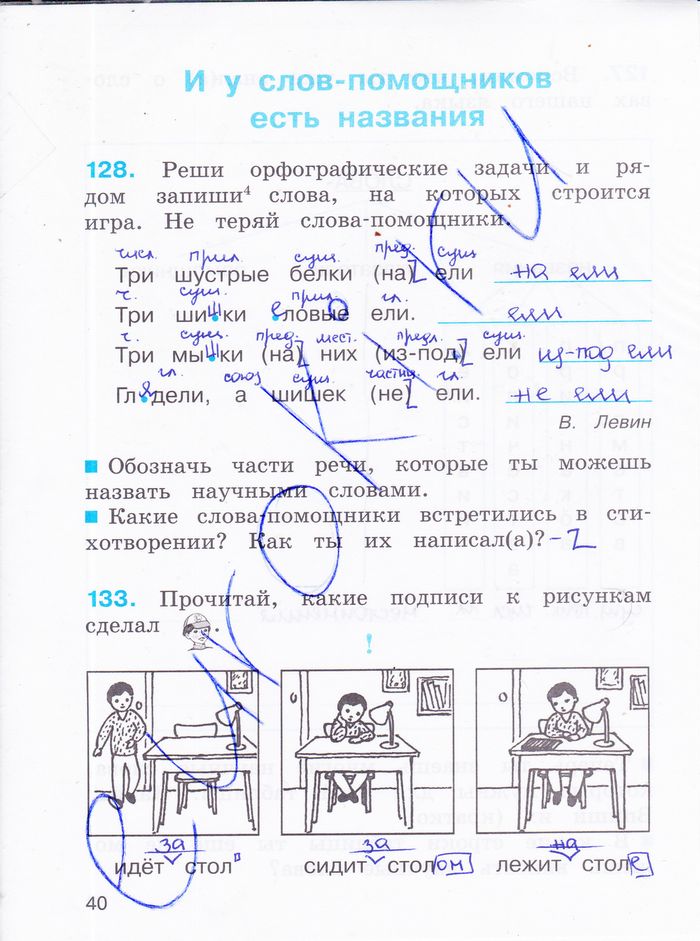 И у слов-помощников
есть названия
128. Реши орфографические задачи и ря-
дом запиши⁴ слова, на которых строится
игра. Не теряй слова-помощники.
числ. прил. сущ. пред. сущ
Три шустрые белки (на) ели на ели
ч. сущ. прил. гл.
Три шишки еловые ели. ели
ч. сущ. пред. мест. предл. сущ.
Три мышки (на) них (из-под) ели из-под ели
гл. союз сущ. частиц. гл.
Глядели, а шишек (не) ели. не ели
В. Левин
Обозначь части речи, которые ты можешь
назвать научными словами.
Какие слова-помощники встретились в сти-
хотворении? Как ты их написал(а)? -
133. Прочитай, какие подписи к рисункам
сделал .
!
за за на
идёт стол сидит столом лежит столе
40